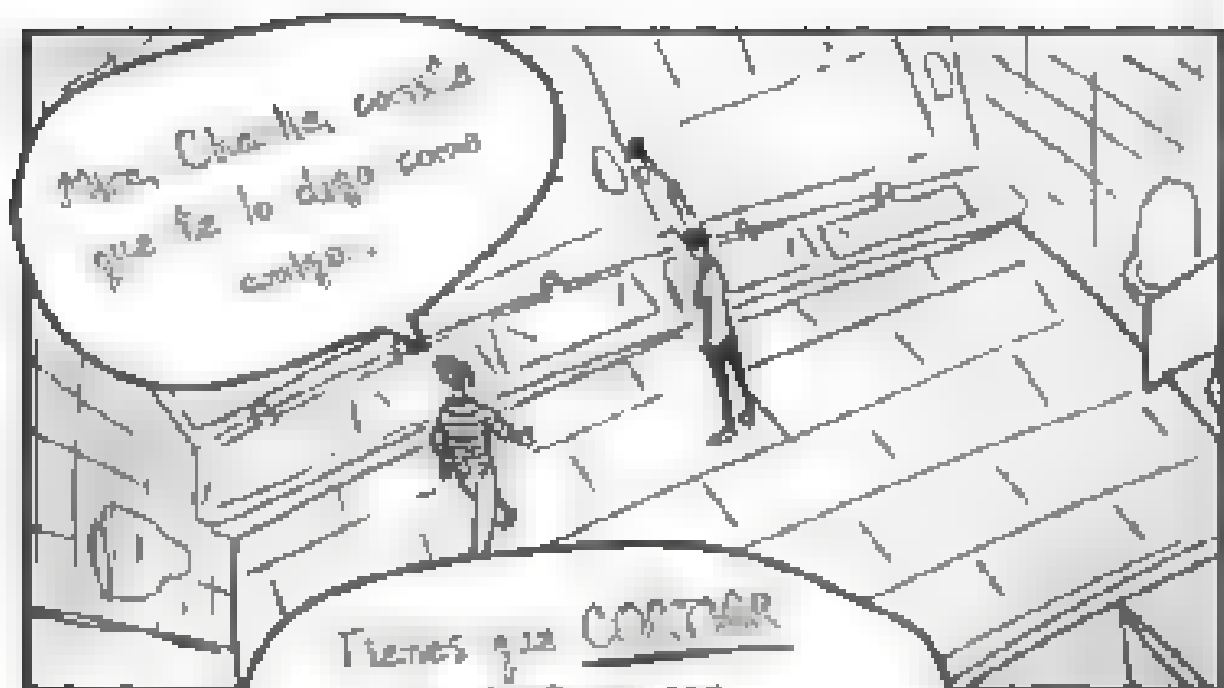 Mira, Charlie, conste
que te lo digo como
amigo.
Tienes que CORTAR